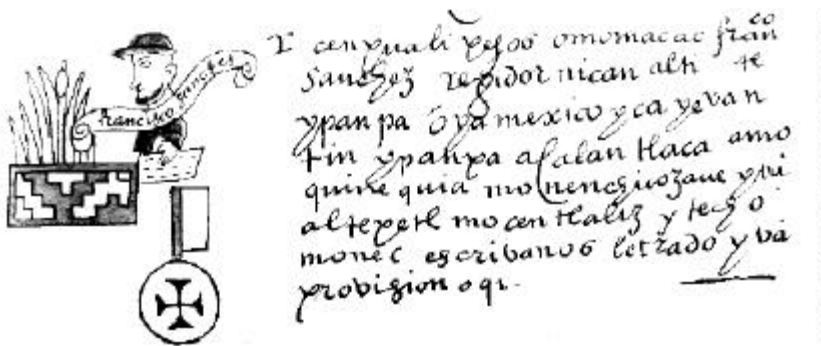 francisco sanches
cenpuali pesos omomacac fran^co
sanchez regidor nican alti
ypanpa oya mexico yca yevan
tin ypanpa acalan tlaca amo
altepetl mocentlaliz y techo
monec escribanos letrado y va
provision oqi.